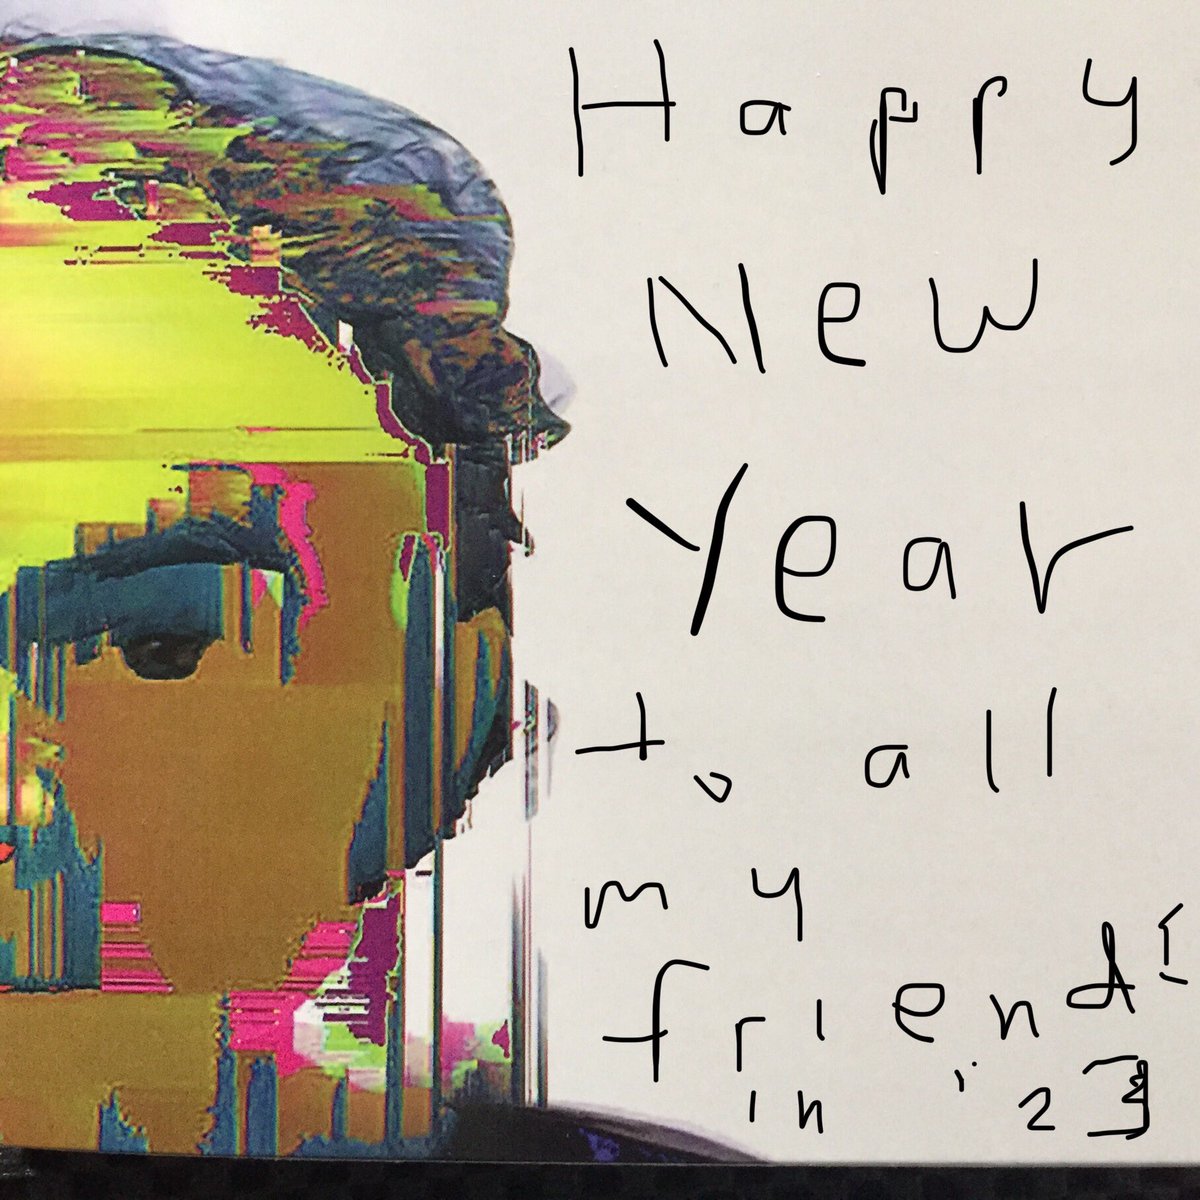 Happy
New
Year
to all
my
friends
in '23